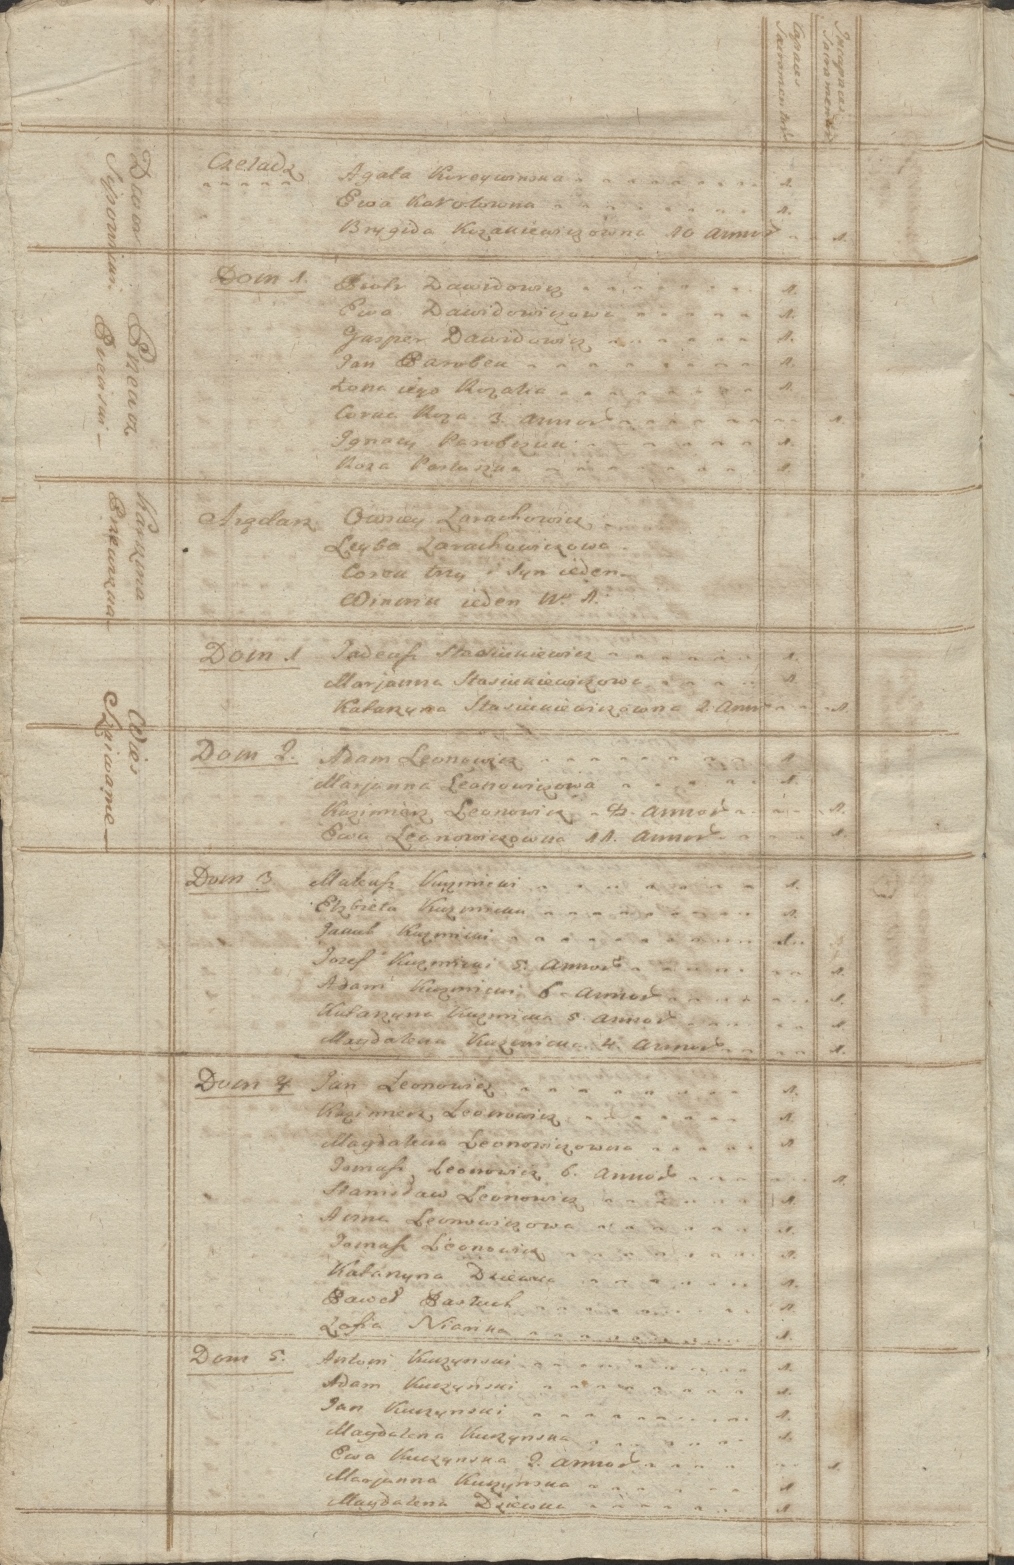 Capaces Sacramentor̃
Incapaces Sacramentor̃
Dwor Pneacz
Czeladz
Agata
Ewa Karolowna 1.
Brygida Kozakiewiczowna 10 annor̃ 1.
Dom 1.
Piotr Dawidowicz 1.
Ewa Dawidowiczowa 1.
Gasper Dawidowicz 1.
Jan Parobek 1.
Żona iego Rozalia 1.
Corka Roza 3. annor̃ 1.
Ignacy Parobczak 1.
Roza Pastuszka 1.
Karczma
Arędarz
Zarachowicz
Leyba Zarachowiczowa
Corek trzy i syn ieden
ieden Nº 1.
Wies
Dom 1
Tadeusz Stasiukiewicz 1.
Marjanna Stasiukiewiczowa 1.
Katarzyna Stasiukiewiczowna 2 annor̃ 1.
Dom 2.
Adam Leonowicz 1.
Marjanna Leonowiczowa 1.
Kazimierz Leonowicz annor̃ 1.
Ewa Leonowiczowna 11. annor̃ 1.
Dom 3
Mateusz Kuzmicki 1.
Elzbieta Kuzmicka 1.
Jakub Kuzmicki 1.
Jozef Kuzmicki 5. annor̃ 1.
Adam Kuzmicki 6 annor̃ 1.
Katarzyna Kuzmicka 8 annor̃ 1.
Magdalena Kuzmicka 4. annor̃ 1.
Dom 4
Jan Leonowicz 1.
Kazimierz Leonowicz 1.
Magdalena Leonowiczowna 1.
Tomasz Leonowicz 6. annor̃ 1.
Stanisław Leonowicz 1.
Anna Leonowiczowa 1.
Tomasz Leonowicz 1.
Katarzyna Dziewka 1.
Paweł Pastuch 1.
Zofia Nianka 1.
Dom 5.
Antoni Kuczynski 1.
Adam Kuczynski 1.
Jan Kuczynski 1.
Magdalena Kuczynska 1.
Ewa Kuczynska 2. annor̃ 1.
Marjanna Kuczynska 1.
Magdalena Dziewka 1.